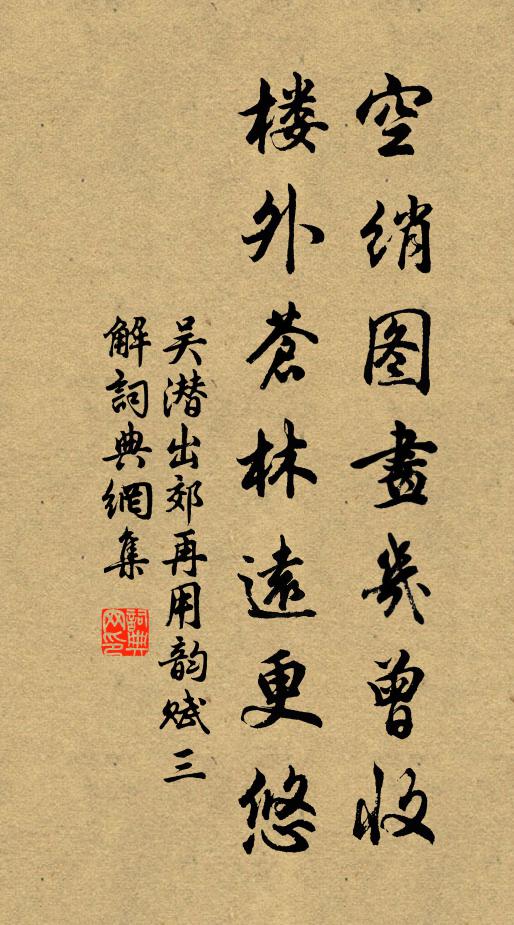 空绡图畫幾曾收
楼外蒼林遠更悠
吴潜出郊再用韵赋三
解詞典網集
詞典网印